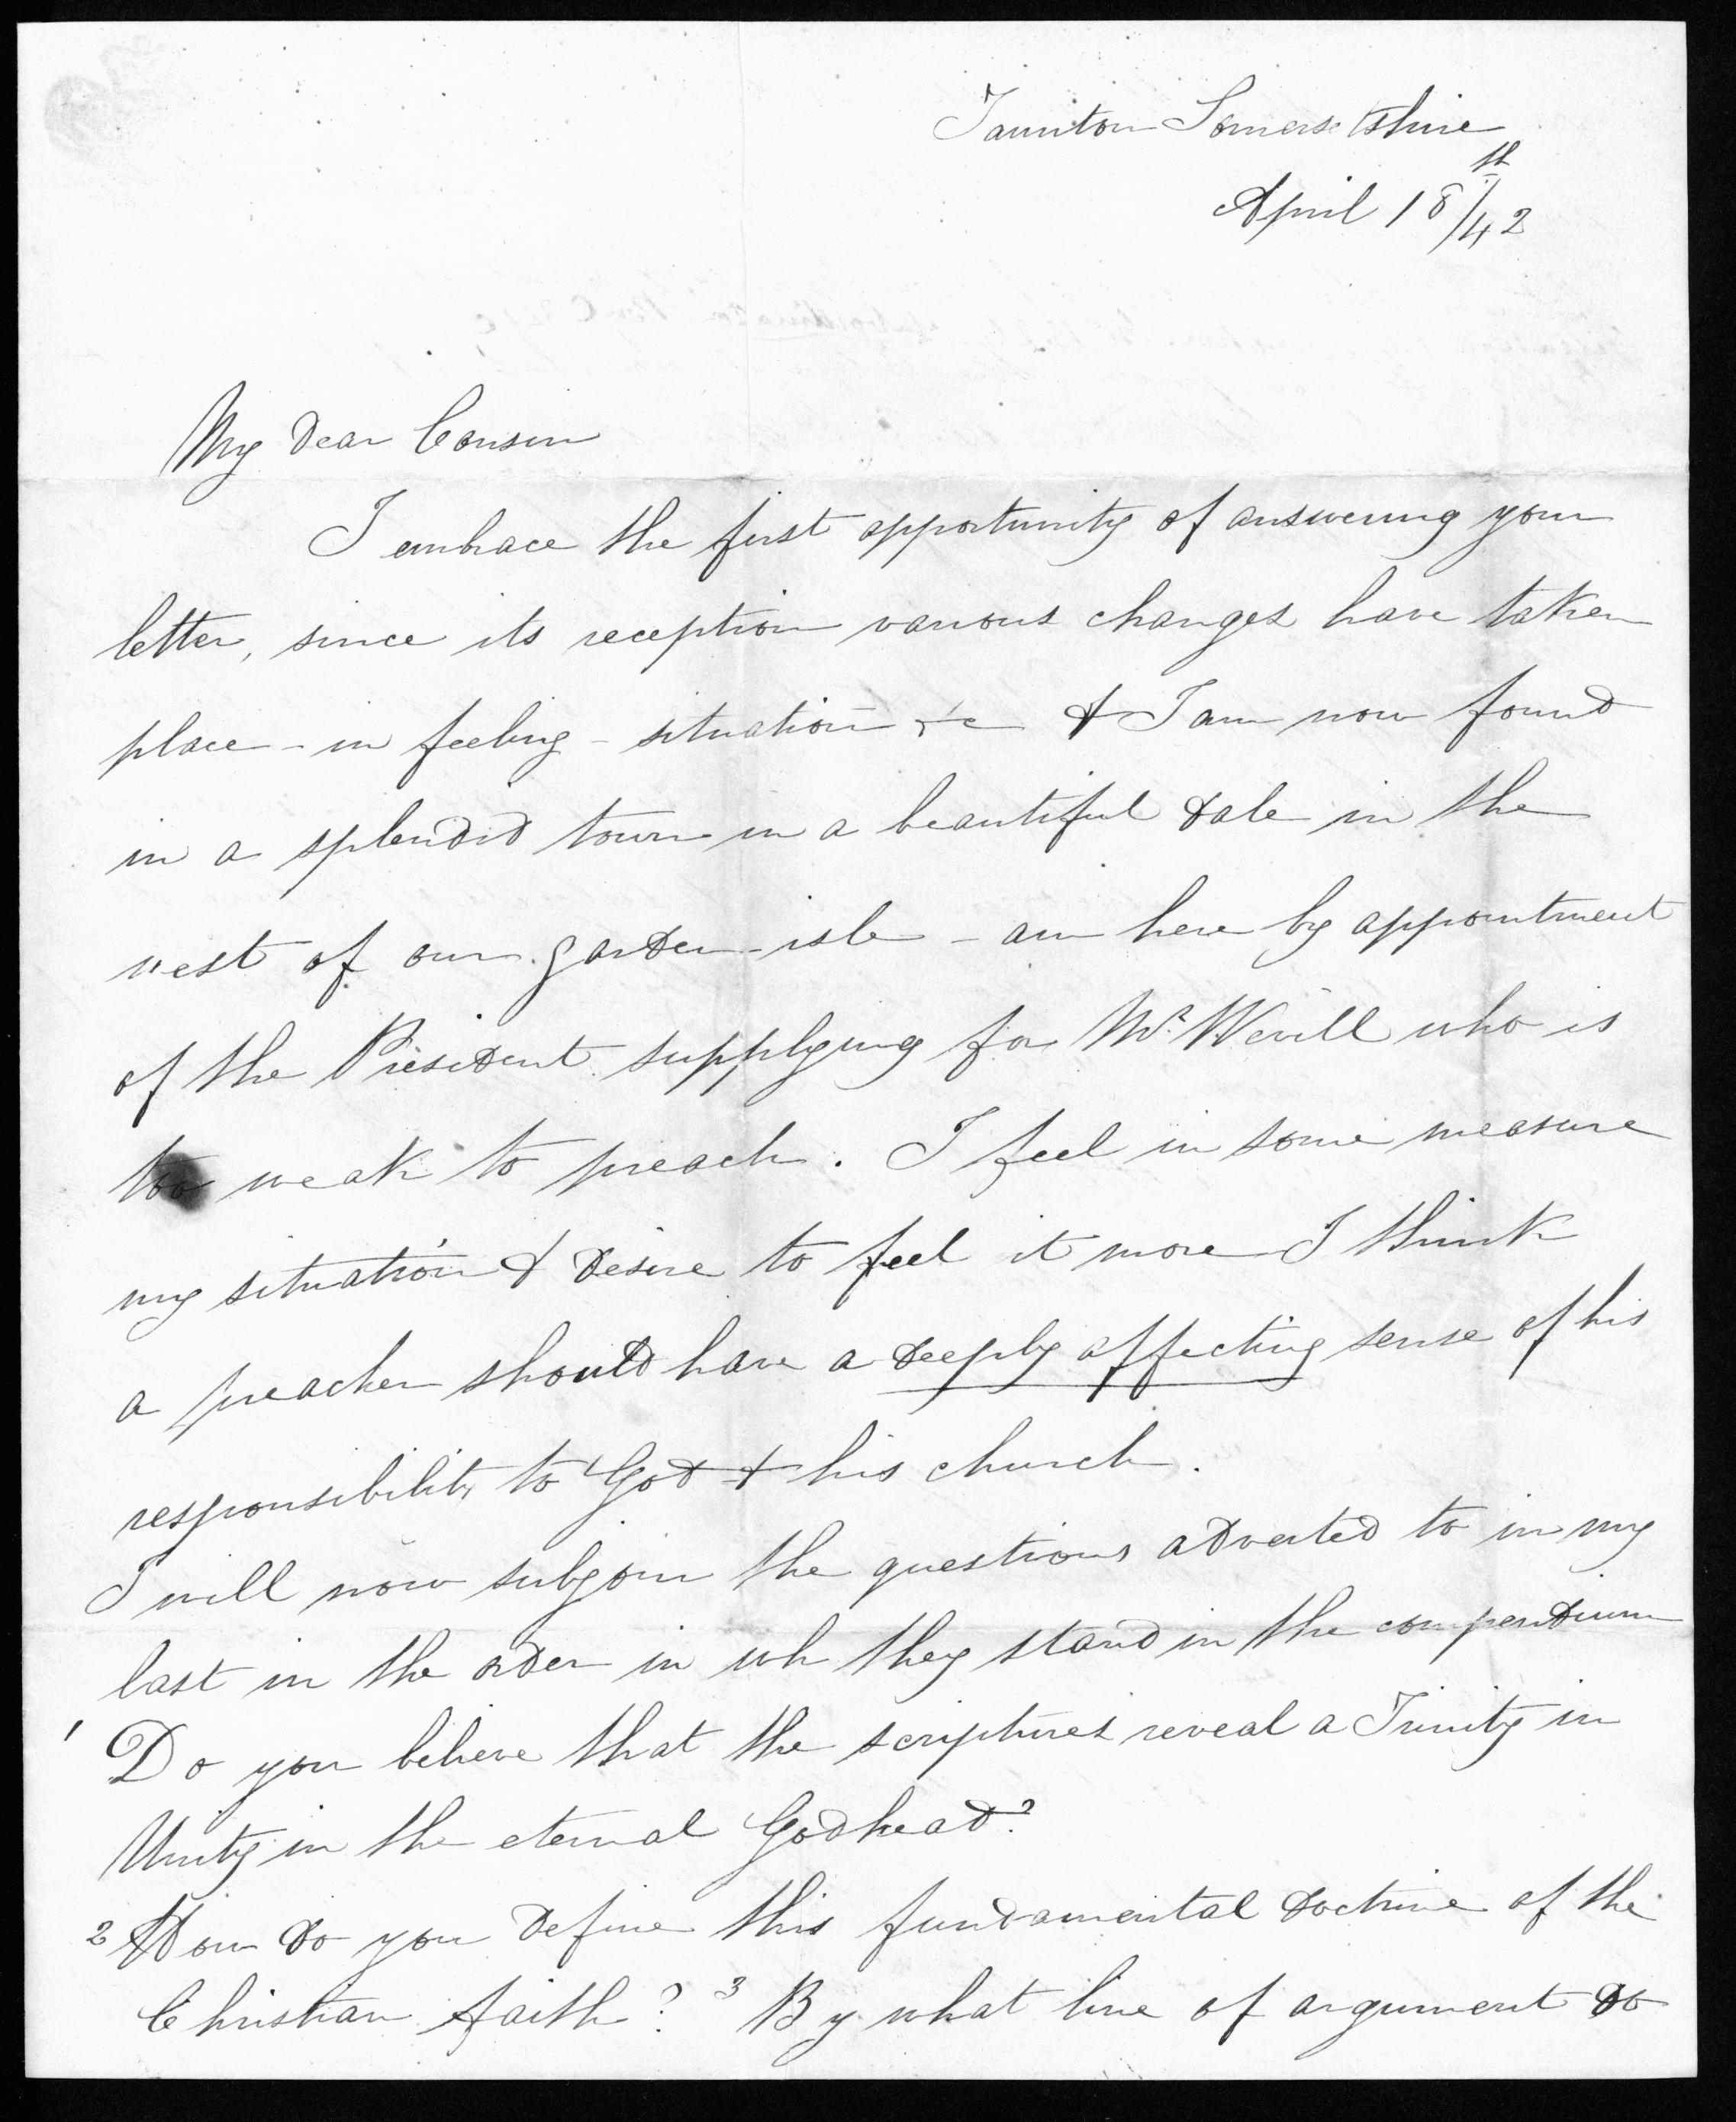 Taunton Somersetshire
April 18th/42
My Dear Cousin
I embrace the first opportunity of answering your
letter, since its reception various changes have taken
place - in feeling - situation &c & I am now found
in a splendid town in a beautiful dale in the
west of our garden-isle - am here by appointment
of the President supplying for Mr. Wevill who is
too weak to preach. I feel in some measure
my situation & desire to feel it more I think
a preacher should have a deeply affecting sense of his
responsibility to God & his church.
I will now subjoin the questions adverted to in my
last in the order in wh they stand in the compendium
1 Do you believe that the scriptures reveal a Trinity in
Unity in the eternal Godhead?
2 How do you define this fundamental doctrine of the
Christian faith? 3 By what line of argument do